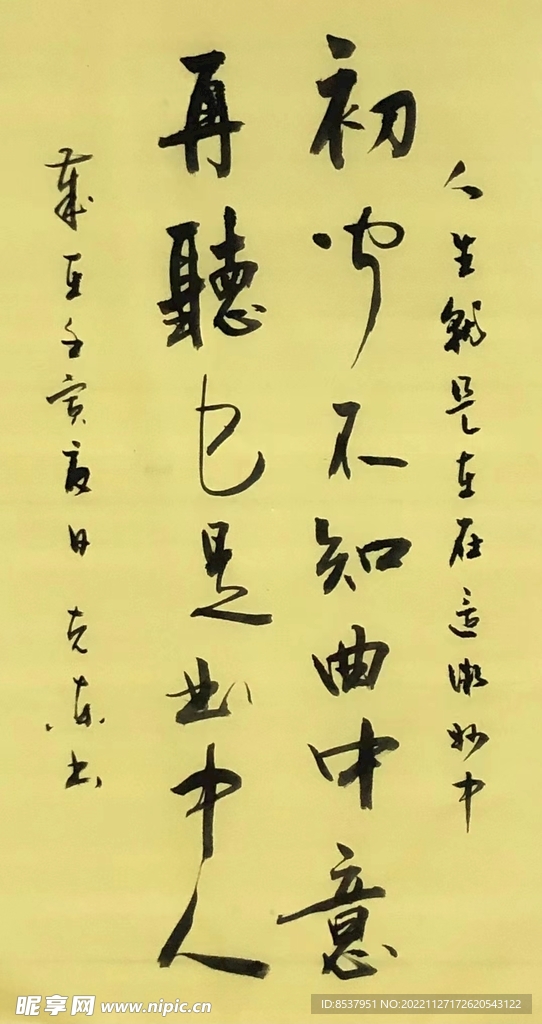 人生就是在這微妙中
初聞不知曲中意
再聽已是曲中人
歲在壬寅夏日 克書
昵享网 www.nipic.cn
ID:8537951 NO:20221127172620543122